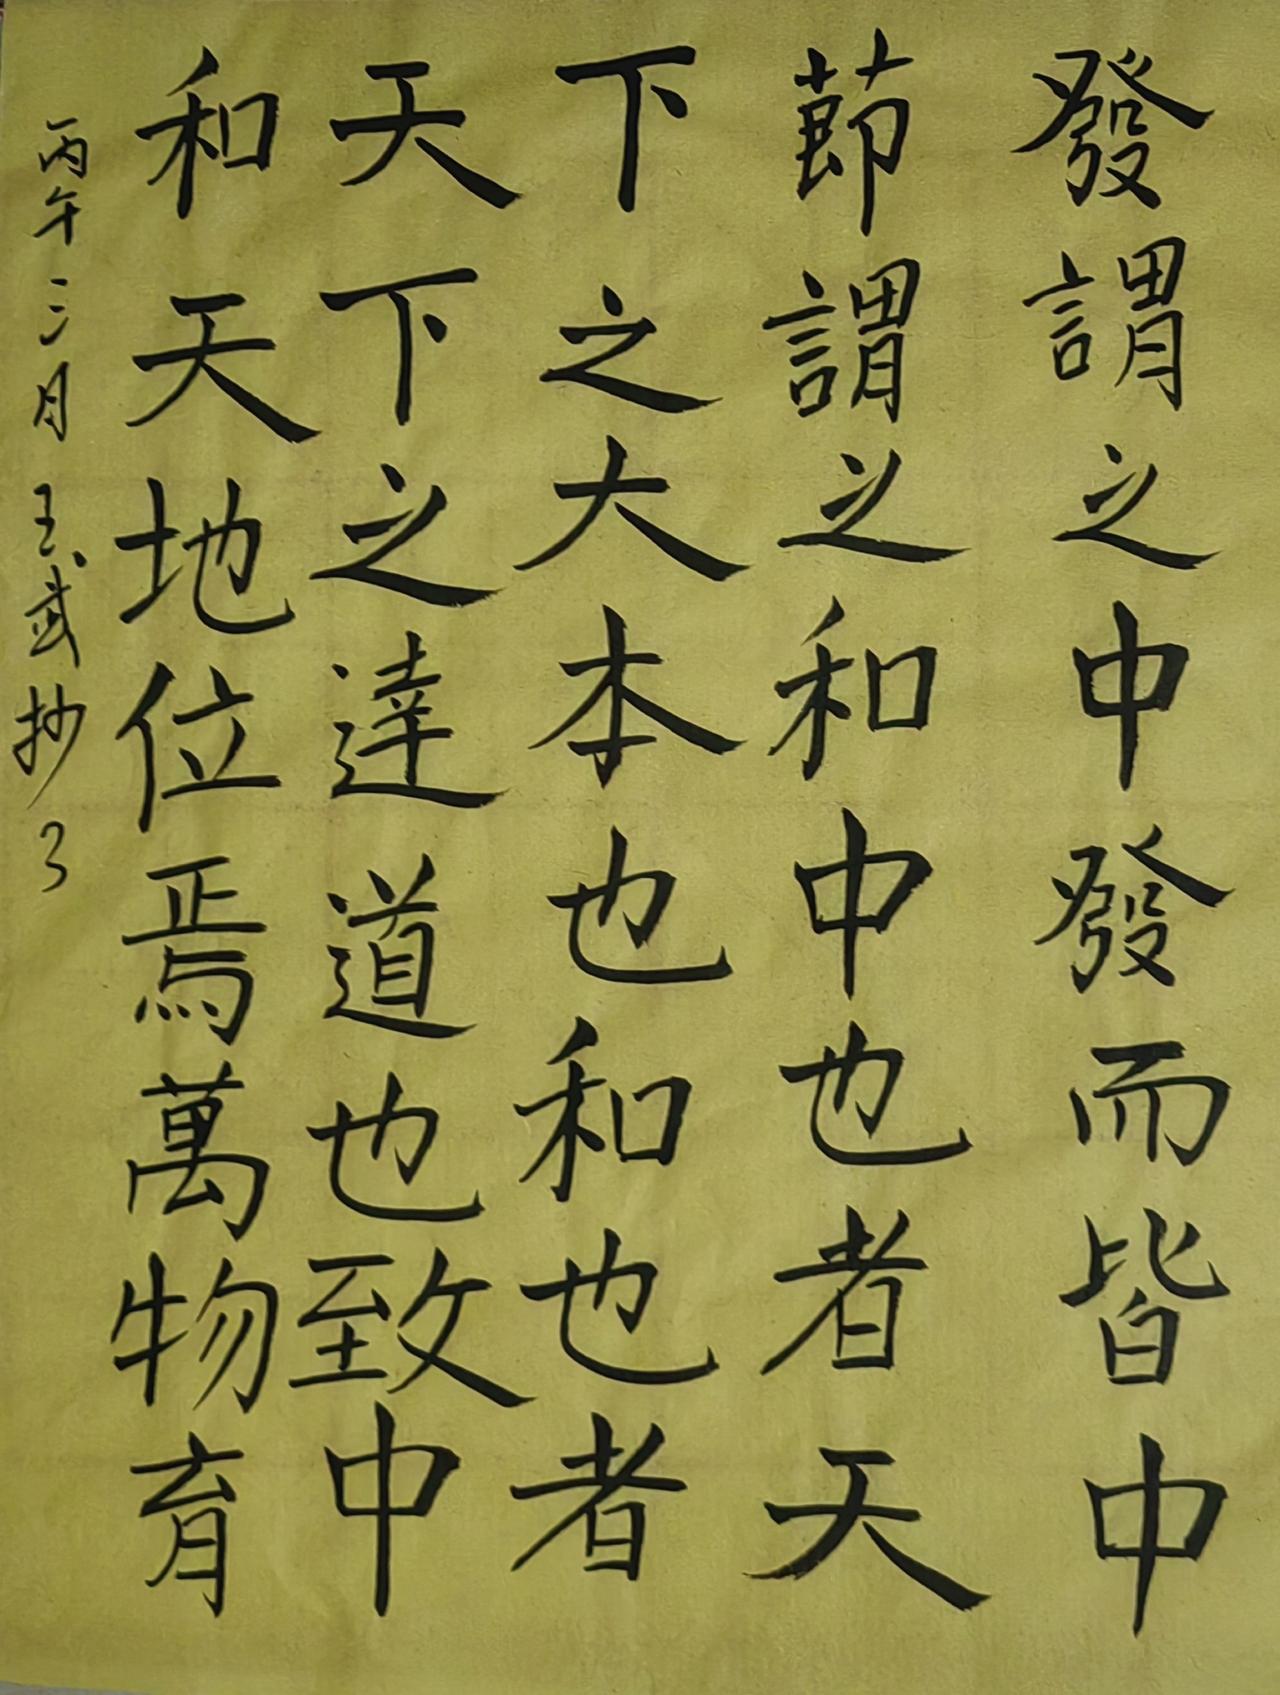 發謂之中發而皆中
節謂之和中也者天
下之大本也和也者
天下之達道也致中
和天地位焉萬物育
丙午三月王武抄了